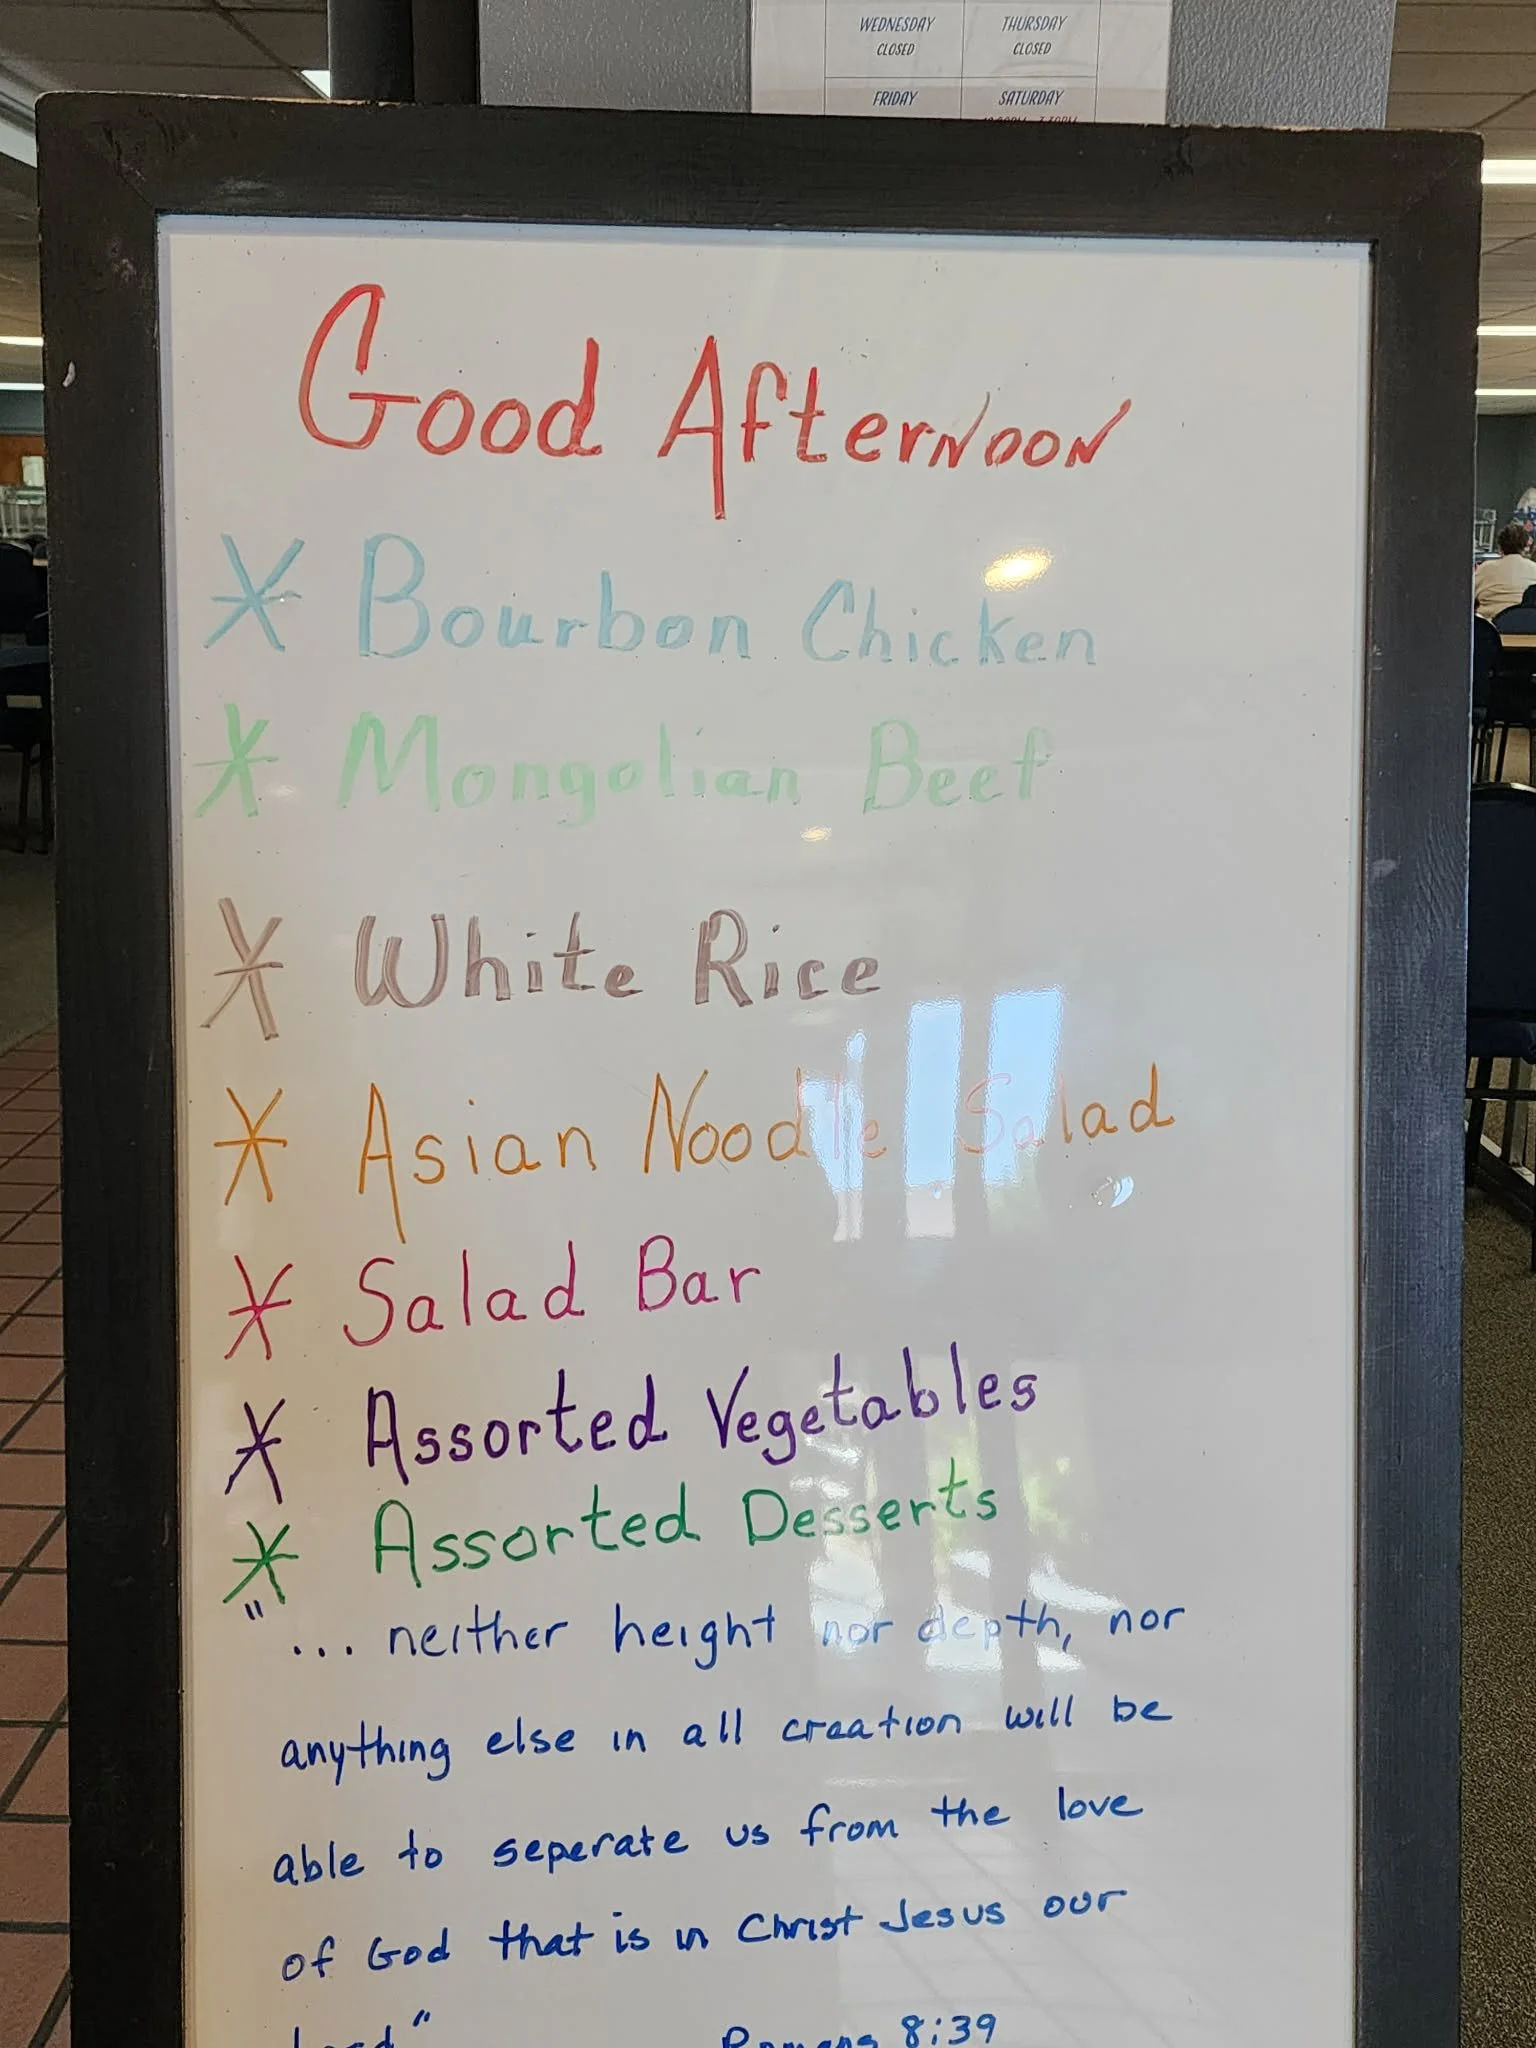 WEDNESDAY THURSDAY
CLOSED CLOSED
FRIDAY SATURDAY
Good Afternoon
* Bourbon Chicken
* Mongolian Beef
* White Rice
* Asian Noodle Salad
* Salad Bar
* Assorted Vegetables
* Assorted Desserts
"... neither height nor depth, nor
anything else in all creation will be
able to seperate us from the love
of God that is in Christ Jesus our
Lord" Romans 8:39